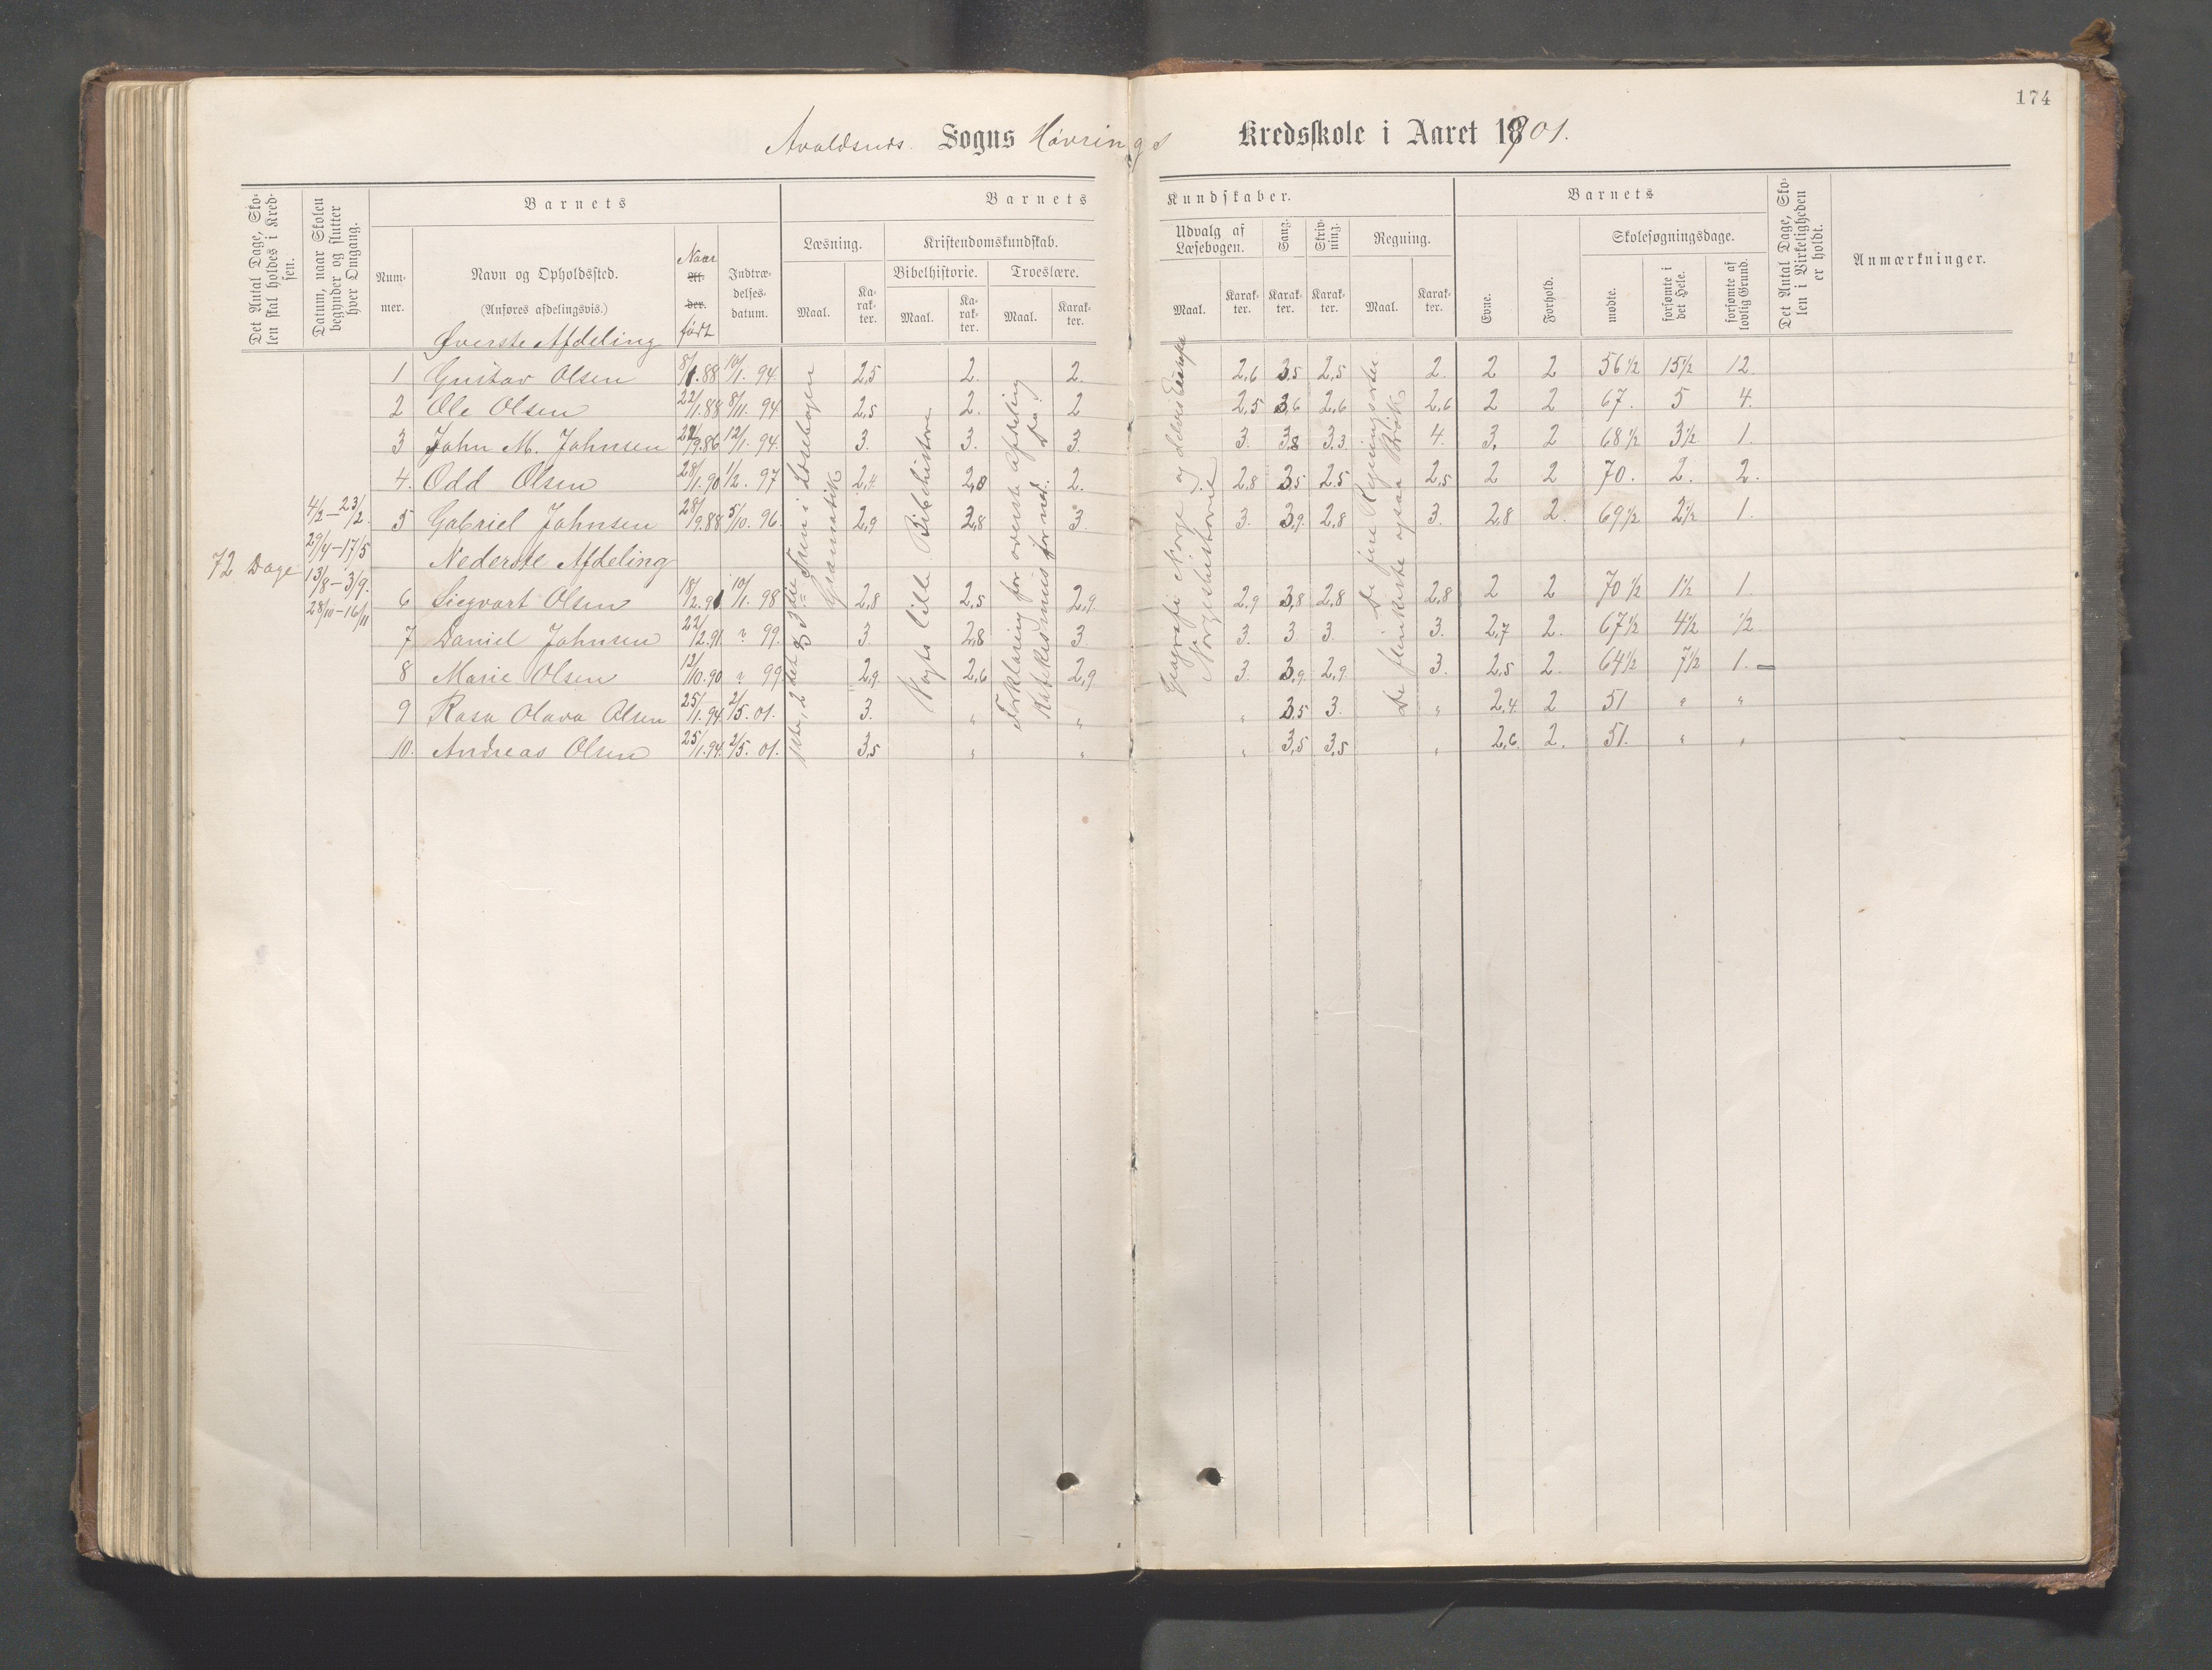 174
Avaldsnes Sogns Høvrings Kredsskole i Aaret 1901.
Det Antal Dage, Skolen skal holdes i Kredsen.
Datum, naar Skolen begynder og slutter hver Omgang.
Barnets
Nummer.
Navn og Opholdssted.
(Anføres afdelingsvis.)
Naar født
Alder.
Indtrædelsesdatum.
Barnets Kundskaber.
Læsning.
Maal. Karakter.
Kristendomskundskab.
Bibelhistorie. Troeslære.
Maal. Karakter. Maal. Karakter.
Udvalg af Læsebogen.
Maal. Karakter.
Sang. Karakter.
Skrivning. Karakter.
Regning.
Maal. Karakter.
Barnets
Evne. Forhold.
Skolesøgningsdage.
mødte. forsømte i det Hele. forsømte af lovlig Grund.
Det Antal Dage, Skolen i Virkeligheden er holdt.
Anmærkninger.
72 Dage
4/2 – 23/2.
29/4 – 17/5
13/8 – 3/9.
28/10 – 16/11
1ste, 2det og 3die Trin i Læsebogen
Gramatik
Vogts lille Bibelhistorie
Forklaring for øverste Afdeling
Katekismus for ned. Do.
Geografi Norge og
Norgeshistorie
De fire Regningsarter.
De flinkeste ogsaa Brøk
Øverste Afdeling
1 Gustav Olsen 8/1.88 10/1. 94. 2,5 2. 2. 2,6 3,5 2,5 2. 2 2 56 1/2 15 1/2 12.
2 Ole Olsen 22/1.88 8/11. 94 2,5 2. 2 2,5 3,6 2,6 2,6 2 2 67. 5 4.
3 John M. Johnsen /9.86 12/1. 94. 3. 3. 3. 3. 3,8 3,3. 4. 3. 2 68 1/2 3 1/2 1.
4. Odd Olsen 28/1.90 1/2. 97 2,4. 2,8 2. 2,8 3,5 2,5 2,5 2 2 70. 2. 2.
5 Gabriel Johnsen 28/9.88 5/10. 96. 2,9 2,8 3. 3. 3,9. 2,8 3. 2,8 2. 69 1/2 2 1/2 1.
Nederste Afdeling
6 Siegvart Olsen 18/2.91 10/1. 98 2,8 2,5 2,9. 2,9 3,8 2,8 2,8 2 2 70 1/2 1 1/2 1.
7 Daniel Johnsen 22/2.91 " 99. 3. 2,8 3. 3. 3. 3. 3. 2,7 2. 67 1/2 4 1/2 1/2
8 Marie Olsen 12/10.90 " 99 2,9. 2,6 2,9. 3. 3,9. 2,9. 3. 2,5 2. 64 1/2 7 1/2 1. –
9 Rasa Olava Olsen 25/1.94. 2/5. 01. 3. " " " 3,5 3. " 2,4. 2 51 " "
10. Andreas Olsen 25/1.94. 2/5. 01. 3,5 " " " 3,5 3,5 " 2,6. 2. 51. " "